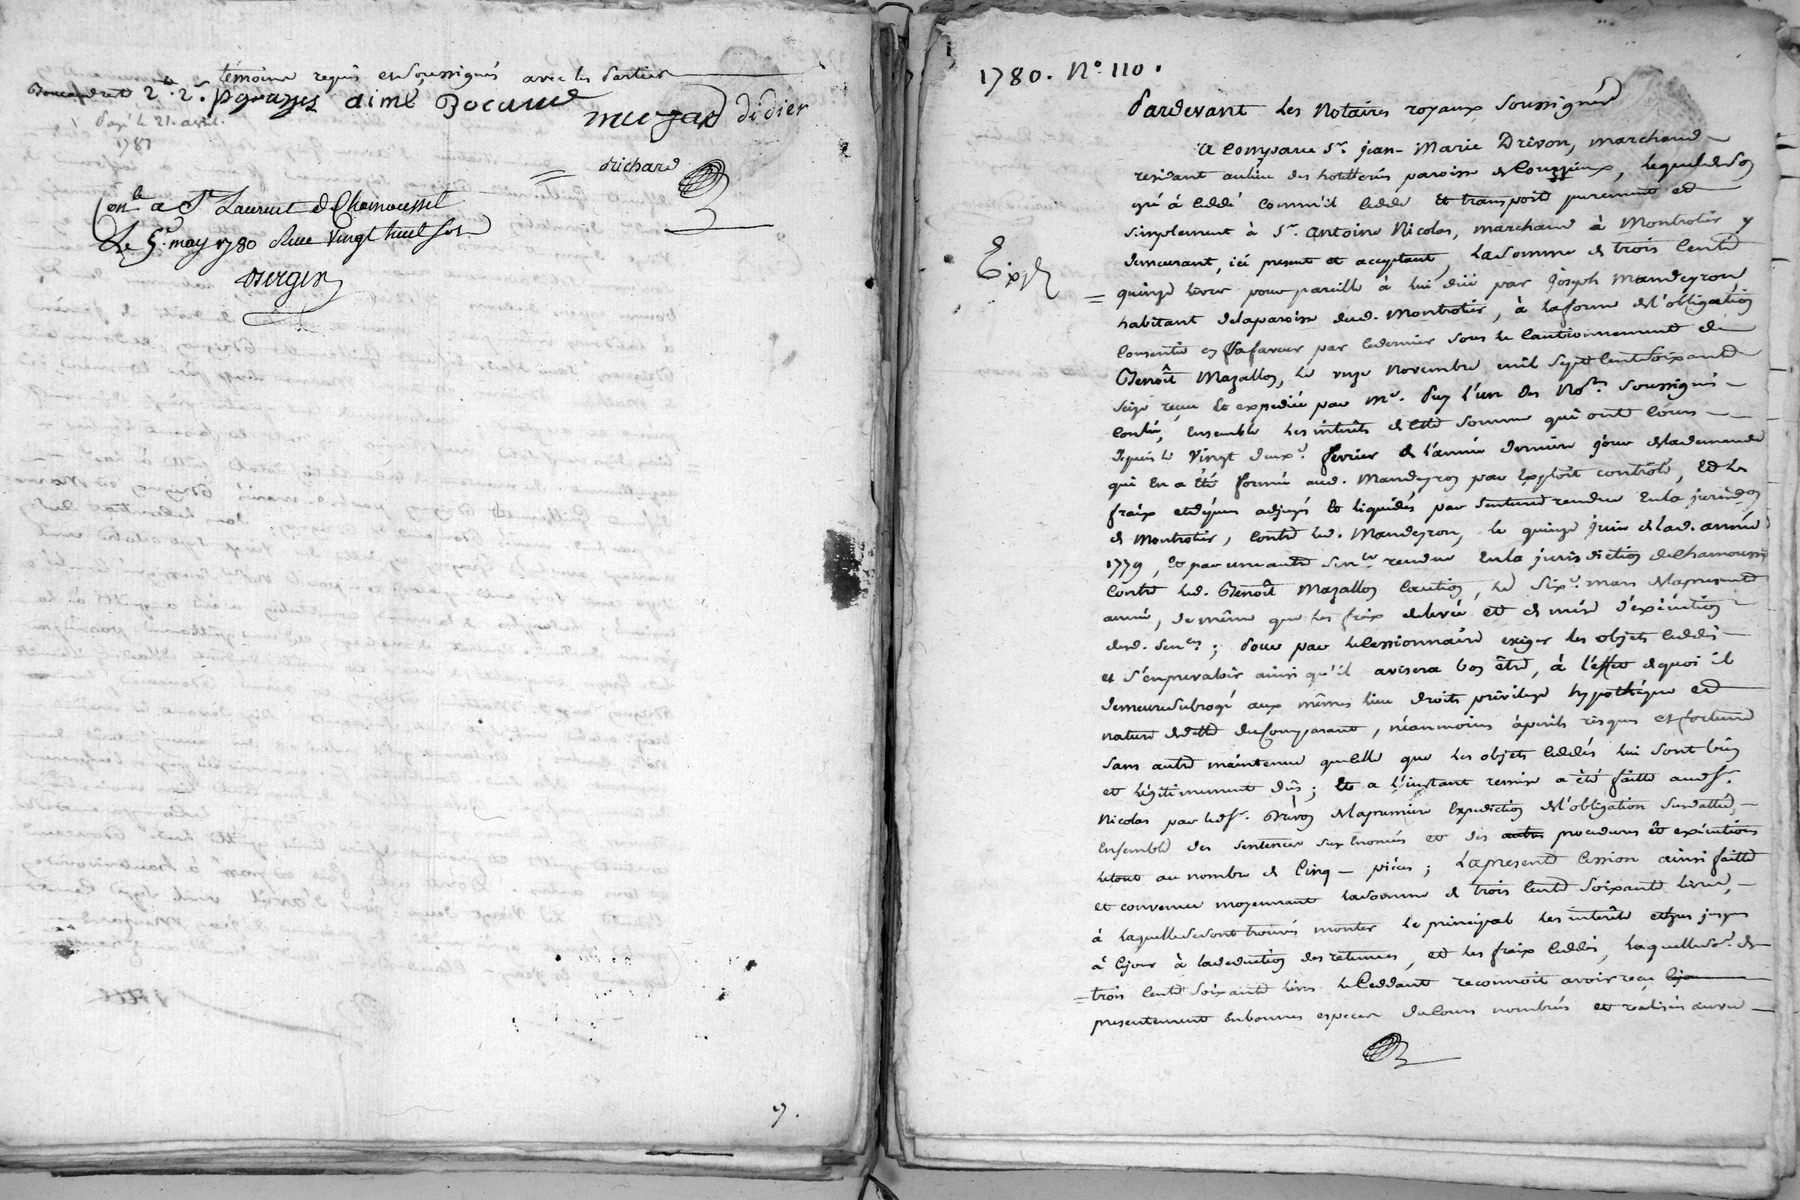 témoins requis et soussignés avec les parties
2d. 2s. pgrasses aimé Bocume
murgard didier
Payé le 21. avril.
1781
Richard
Conlé a St Laurent de Chamousset
Le 5e. may 1780 Reçu vingt huit sols
Bergier
9.
1780. No. 110.
Pardevant les Notaires royaux soussignés
a comparu Sr. jean-Marie Drivon, marchand
residant au lieu des hotelleries paroisse de Courzieux, lequel de son
gré à cédé comm'il cede et transporte purement et
simplement à Sr. antoine Nicolas, marchand à Montrotier y
demeurant, ici present et acceptant, la somme de trois cents
Expé
quinze livres pour pareille à lui düe par joseph Mandeyron
habitant de la paroisse dud. Montrotier, à la forme de l'obligation
consentie en sa faveur par ce dernier sous le cautionnement de
Benoît Mazallon, le onze Novembre mil sept cent soixante
seize reçue et expediée par Me. Puy l'un des Nores. soussignés
controlée, ensemble les intérêts de cette somme qui ont cours
depuis le vingt deuxe. fevrier de l'année derniere jour de la demande
qui en a été formée aud. Mandeyron par exploit contrôlé, et les
fraix et dépens adjugés et liquidés par sentence rendue en la jurisdon
de Montrotier, contre led. Mandeyron, le quinze juin de lad. année
1779, et par une autre sence rendue en la jurisdiction de Chamousset
contre led. Benoît Mazallon caution, le sixe. mars de la presente
année, de même que les fraix de levée et de mise d'exécution
desd. sences; pour par le cessionnaire exiger les objets cédés
et s'en prevaloir ainsi qu'il avisera bon être, à l'effet de quoi il
demeure subrogé aux mêmes lieu droits privilege hypothéque et
nature de dette du comparant, néanmoins à perils risques et fortune
sans autre maintenue que celle que les objets cédés lui sont bien
et légitimement dûs; Et a l'instant remise a été faitte aud Sr.
Nicolas par led Sr. Drivon de la premiere expedition de l'obligation susdattée,
ensemble des sentences susénoncées et des autres procedures et exécutions
le tout au nombre de cinq pièces; La presente cession ainsi faitte
et convenue moyennant la somme de trois cents soixante livres,
à laquelle se sont trouvés monter le principal les intérêts echus jusques
à ce jour à la deduction des retenues, et les fraix cédés, laquelle se. de
trois cents soixante livres le Ceddant reconnoit avoir reçu
presentement en bonnes especes du cours nombrés et réalisés au vu